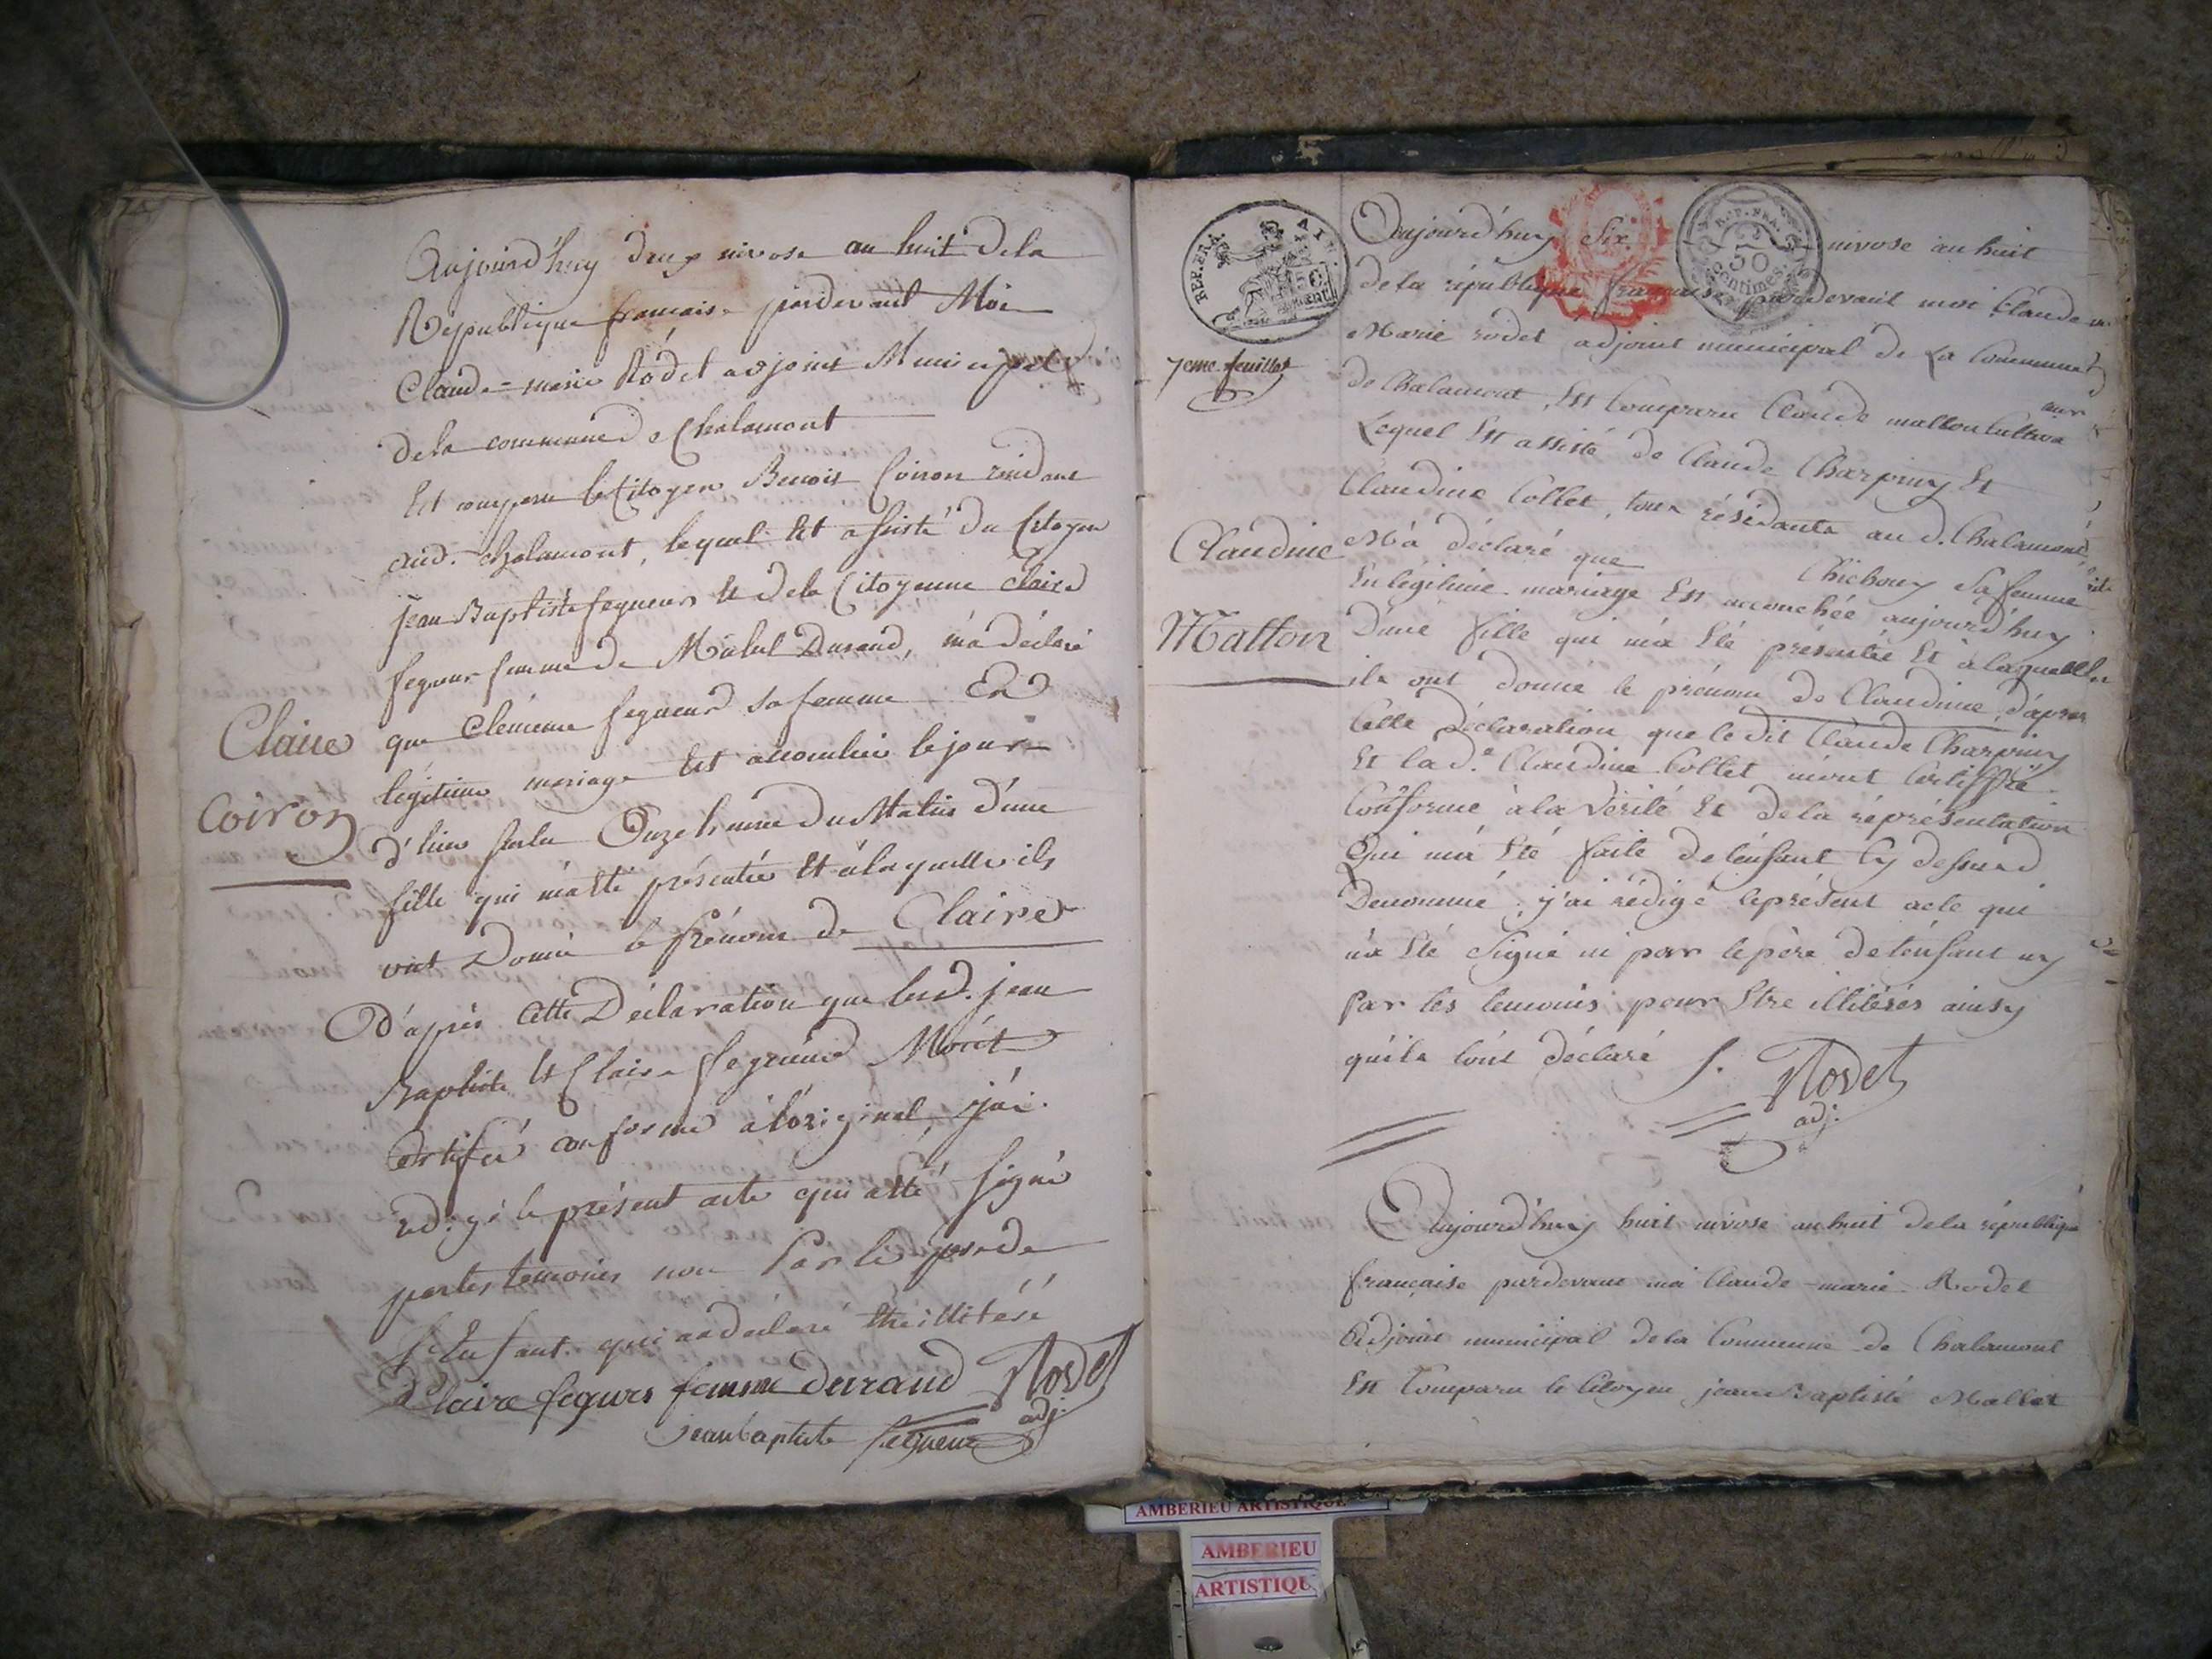 Aujourd'huy deux nivose an huit de la
Republique francaise pardevant Moi
Claude-marie Rodet adjoint Municipal
de la commune de Chalamont
Est comparu le Citoyen Benoit Coiron residant
aud. chalamont, lequel Est assisté du Citoyen
jean Baptiste fegueur Et de la Citoyenne Claire
fegueur femme de Durand, m'a déclaré
que Clémence fegueur sa femme En
légitime mariage Est accouchée le jour
d'hier sur les Onze heures du Matin d'une
fille qui m'a été présentée Et à laquelle ils
ont Donné le prénom de Claire
Claire
Coiron
D'après Cette Déclaration que lesd. jean
Baptiste Et Claire fegueur M'ont
Certifié conforme à l'original, j'ai
redigé le présent acte qui a été signé
par les temoins non Par le pere de
l'Enfant qui a déclaré être illitéré
Claire fegurs femme durand Rodet
adj.
jean baptiste fegueur
REP. FRA.
7eme feuillet
REP. FRA.
50
Centimes
Aujourd'huy Six nivose an huit
de la république française pardevant moi Claude
Marie rodet adjoint municipal de La Commune
de Chalamont, Est Comparu Claude matton Cultiva
teur
Lequel Est assisté de Claude Charpiny Et
Claudine Collet, tous résidants au d. Chalamont
M'a déclaré que Chichoux sa femme
En légitime mariage Est accouchée aujourd'huy
D'une fille qui m'a Eté présentée Et à laquelle
ils ont donné le prénom de Claudine, d'après
Claudine
Matton
Cette déclaration que le dit Claude Charpiny
Et la de. Claudine Collet m'ont Certiffié
Conforme à la Vérité Et de la réprésentation
Qui m'a Eté faite de l'enfant Cy dessus
Denommé; j'ai rédigé le présent acte qui
n'a Eté signé ni par le père de l'enfant ny
Par les temoins pour Etre illitérés ainsy
qu'ils l'ont déclaré f. Rodet
adj.
Aujourd'huy huit nivose an huit de la république
française pardevant moi Claude-marie Rodet
Adjoint municipal de la Commune de Chalamont
Est Comparu le Citoyen jean Baptiste Mallet
AMBERIEU ARTISTIQUE
AMBERIEU
ARTISTIQU